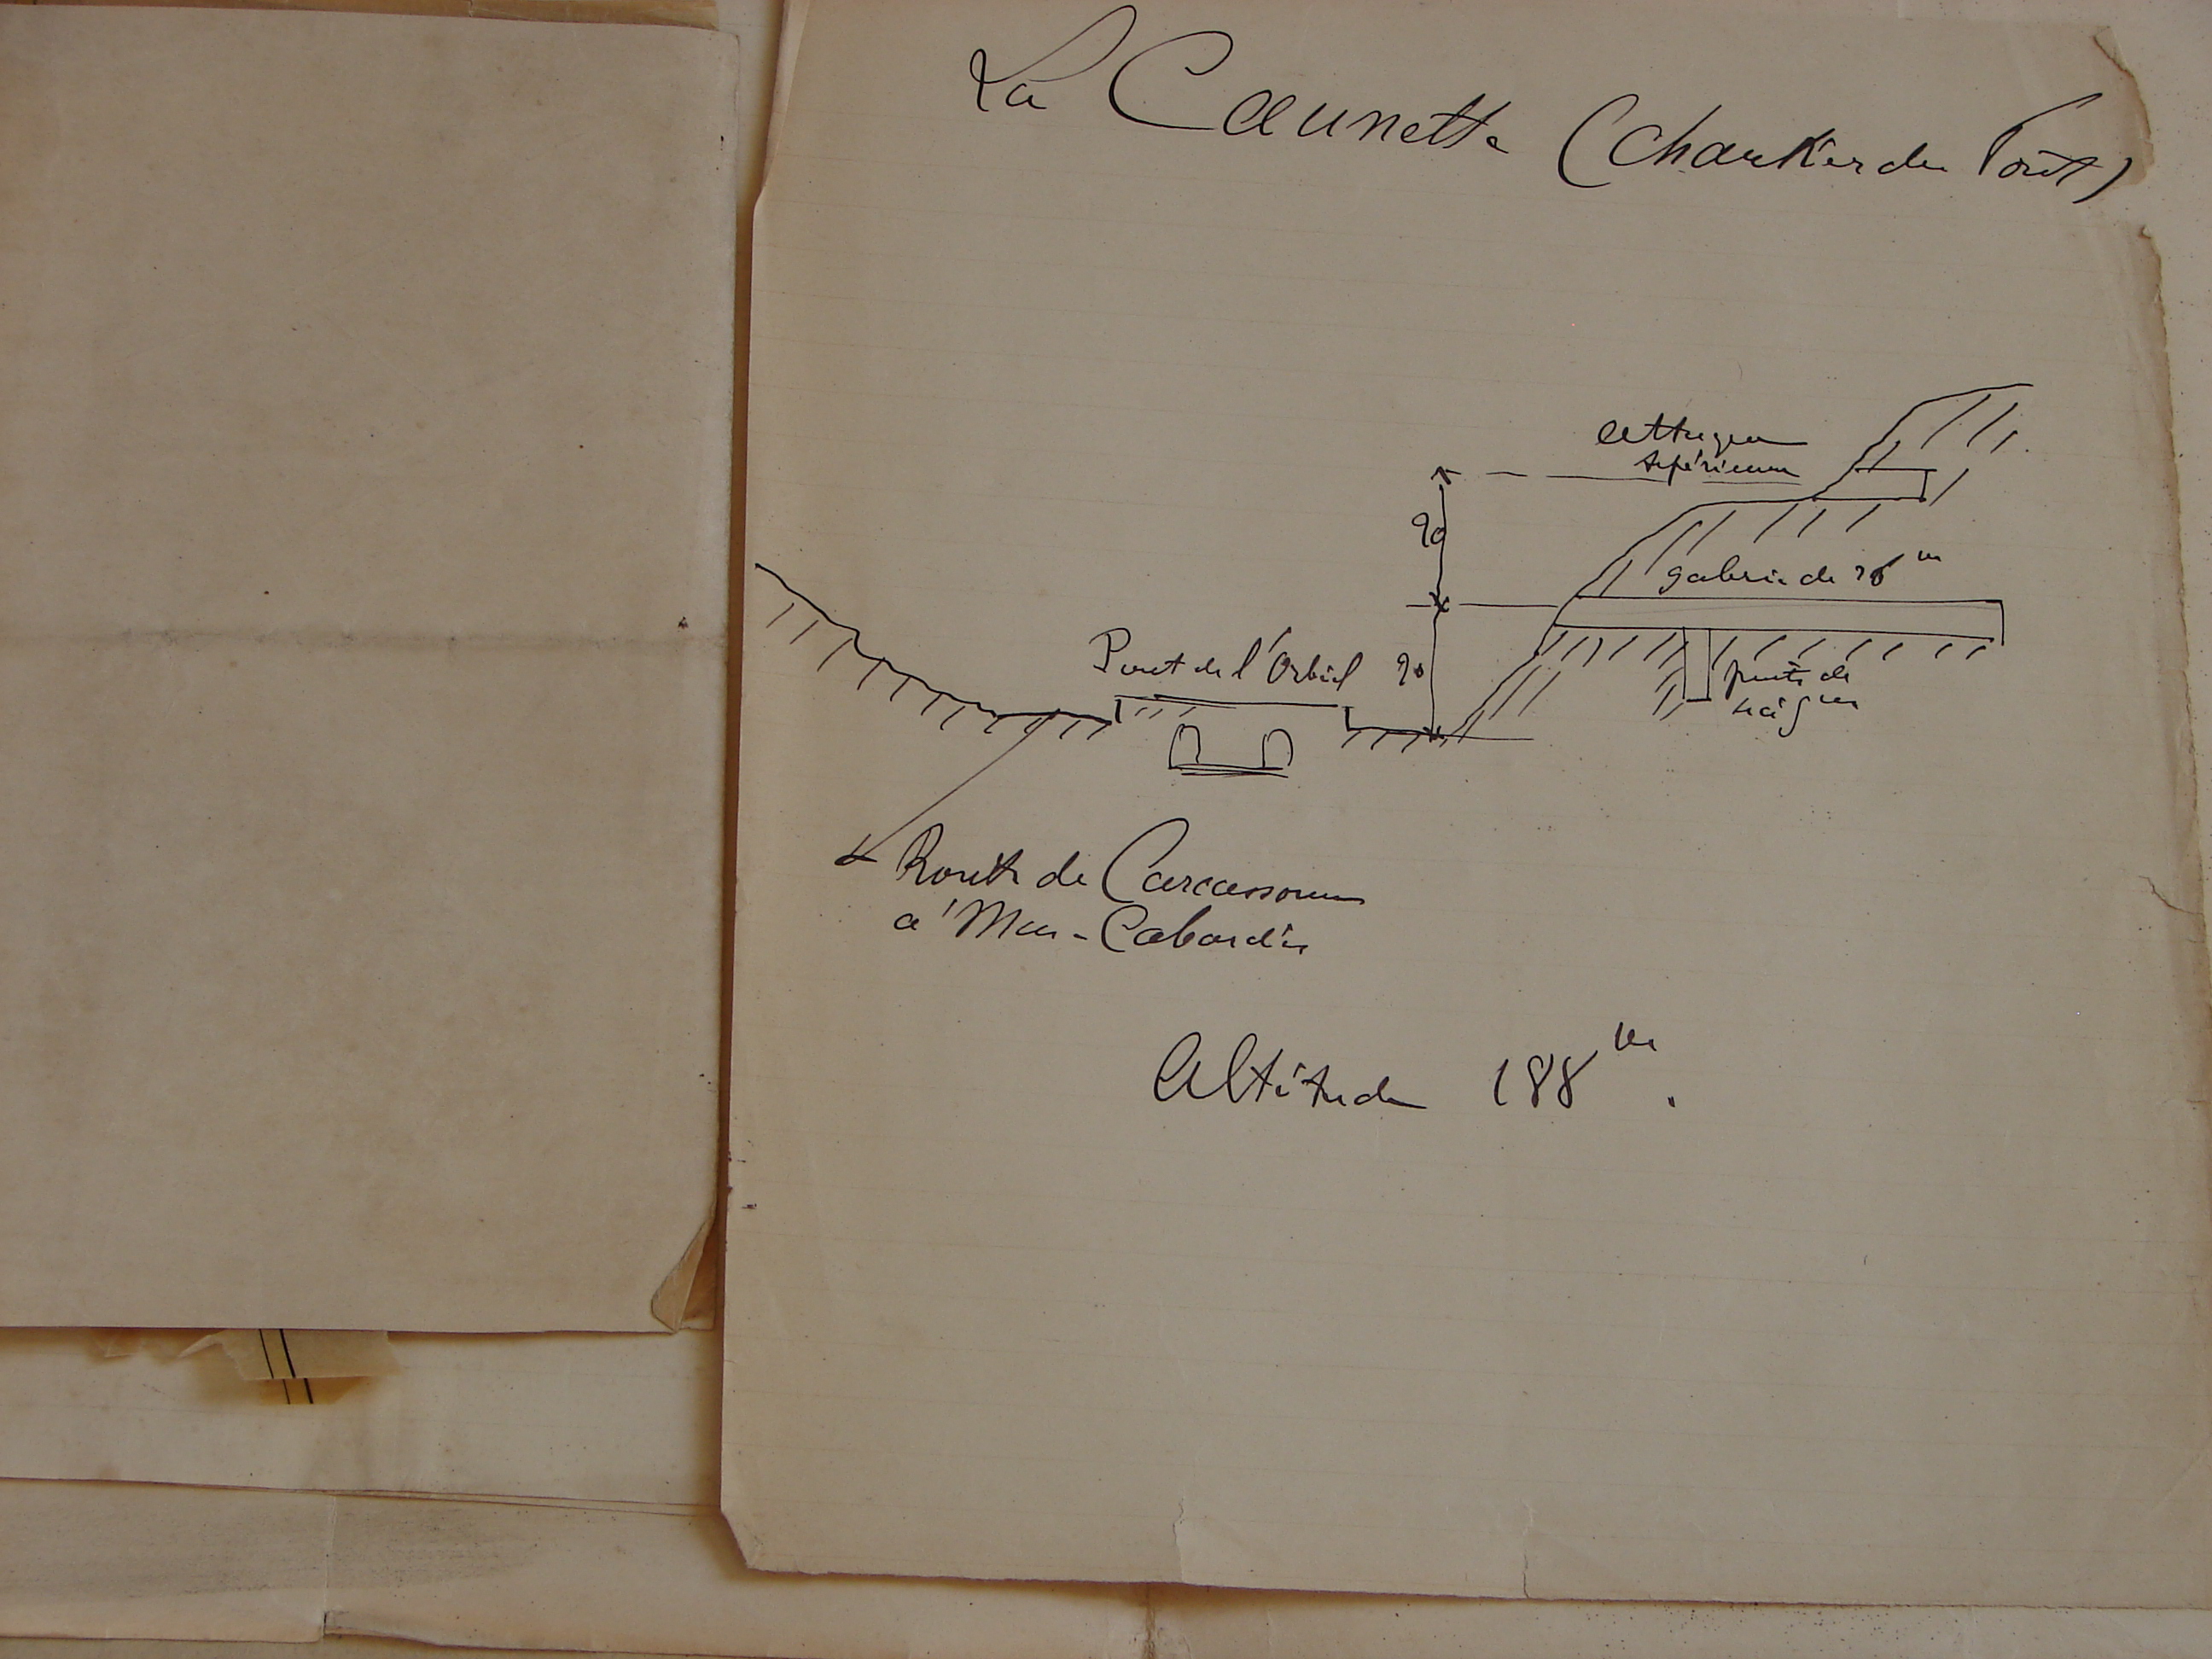 La Caunette (chantier du Pont)
attaque
supérieure
20
galerie de 26 m
Pont de l'Orbiel
20
puits de
Route de Carcassonne
a Mas-Cabardès
Altitude 188 m.